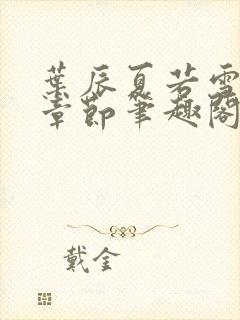 葉辰夏若雪
章節筆趣閣
戴金